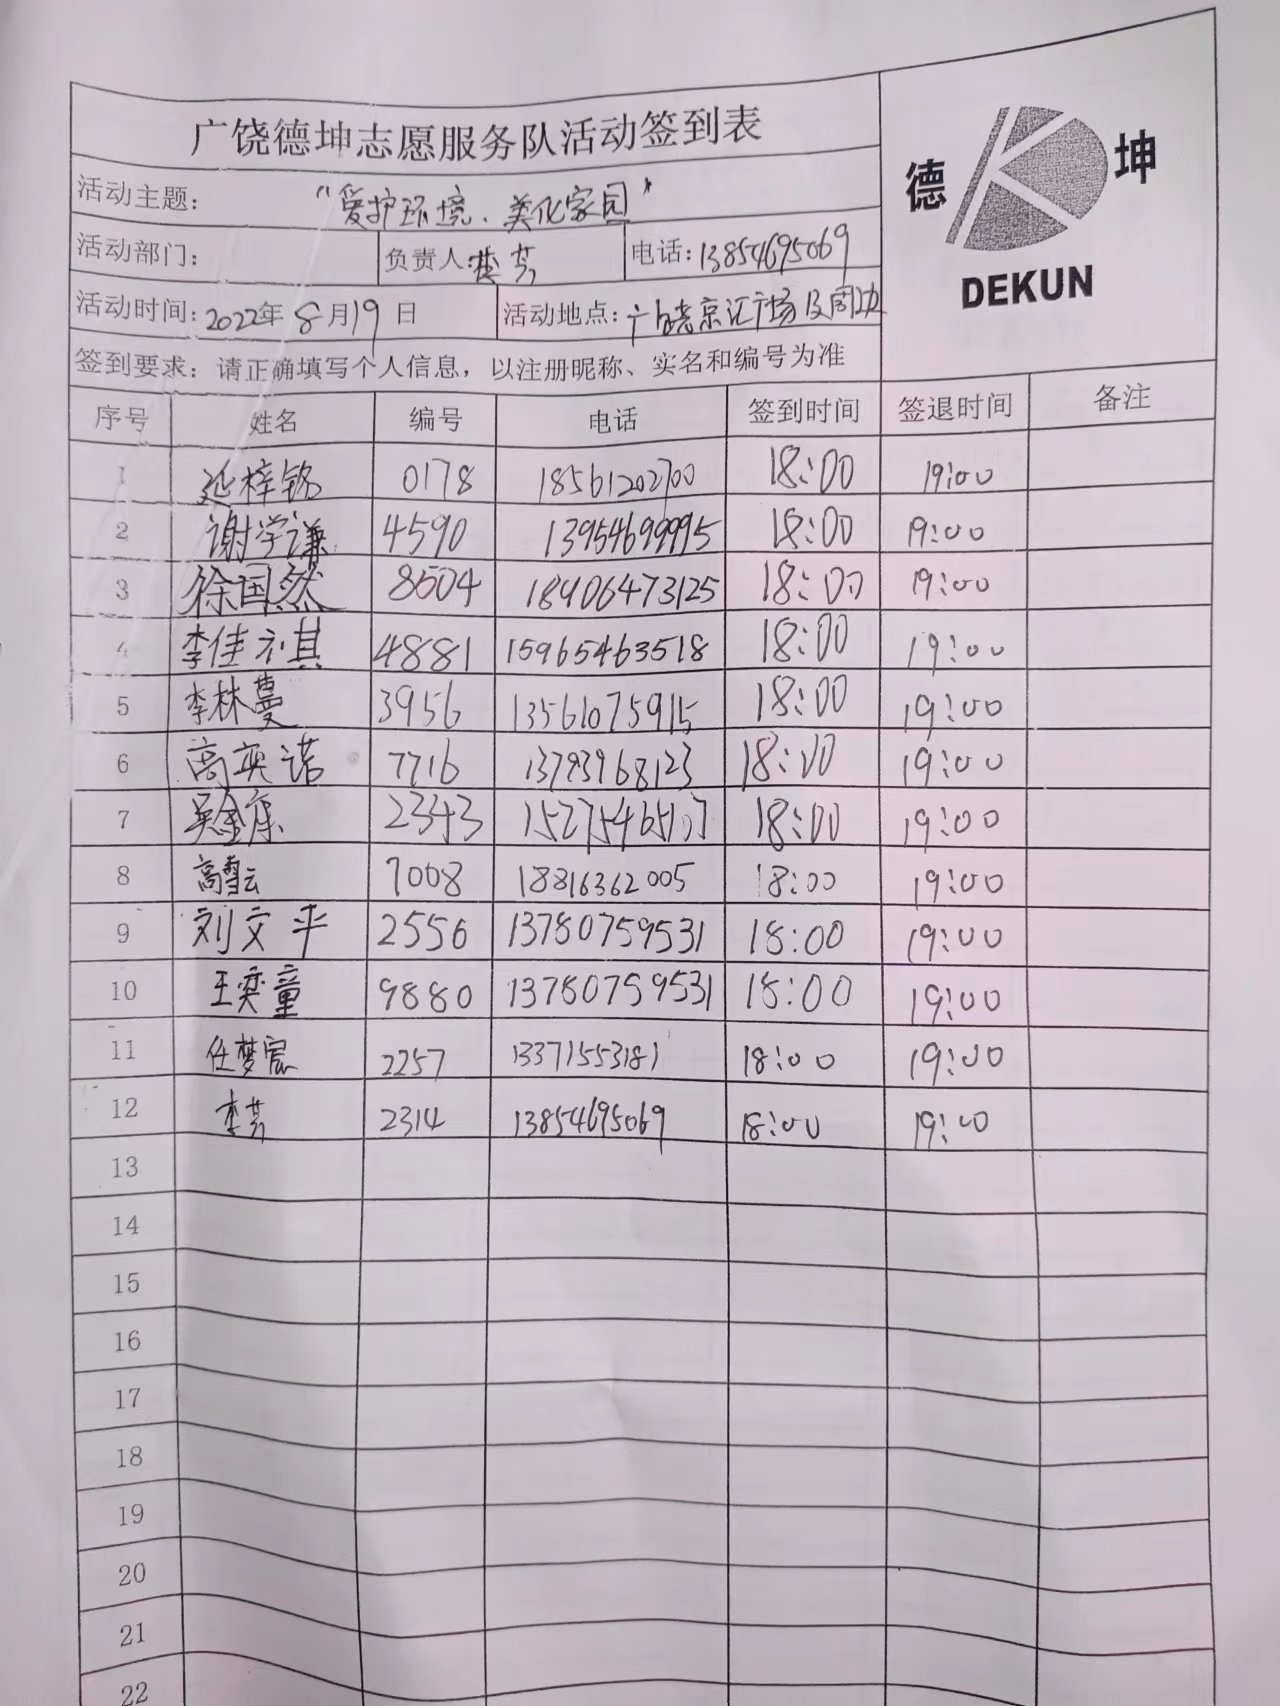 广饶德坤志愿服务队活动签到表
德 坤
DEKUN
活动主题: "爱护环境、美化家园"
活动部门: 负责人: 李芳 电话: 13854695069
活动时间: 2022年 8月19日 活动地点: 广饶京汇广场及周边
签到要求: 请正确填写个人信息, 以注册昵称、实名和编号为准
序号 姓名 编号 电话 签到时间 签退时间 备注
1 延梓铭 0178 18561202700 18:00 19:00
2 谢学谦 4590 13954699995 18:00 19:00
3 徐国然 8604 18406473125 18:00 19:00
4 李佳祺 4881 15965463518 18:00 19:00
5 李林蔓 3956 13561075915 18:00 19:00
6 高英诺 7716 13793968123 18:00 19:00
7 2343 18:00 19:00
8 高雪云 7008 18816362005 18:00 19:00
9 刘文平 2556 13780759531 18:00 19:00
10 王奕童 9880 13780759531 18:00 19:00
11 任梦宸 2257 13371553181 18:00 19:00
12 李芳 2314 13854695069 18:00 19:00
13
14
15
16
17
18
19
20
21
22